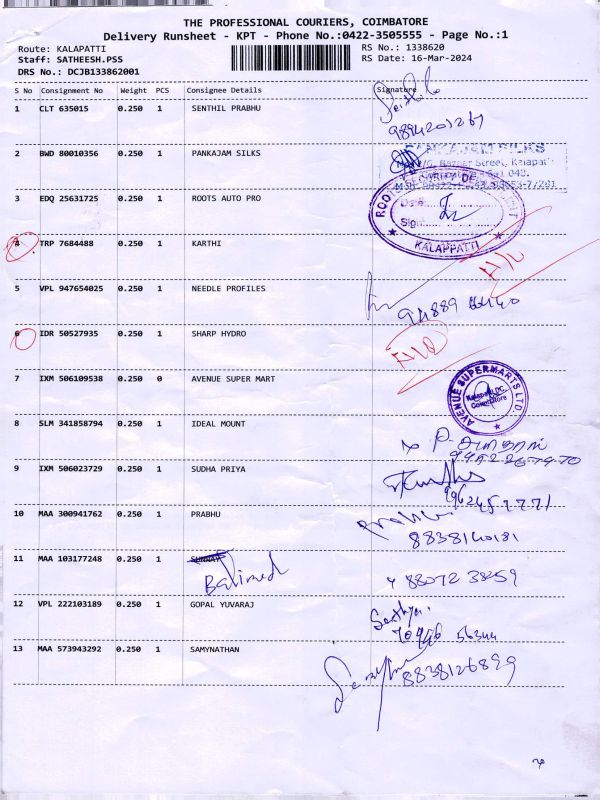 THE PROFESSIONAL COURIERS, COIMBATORE
Delivery Runsheet - KPT - Phone No.:0422-3505555 - Page No.:1
Route: KALAPATTI RS No.: 1338620
Staff: SATHEESH.PSS RS Date: 16-Mar-2024
DRS No.: DCJB133862001
S No Consignment No Weight PCS Consignee Details Signature
1 CLT 635015 0.250 1 SENTHIL PRABHU
2 BWD 80010356 0.250 1 PANKAJAM SILKS
PANKAJAM SILKS
Bazaar Street, Kalapatti
3 EDQ 25631725 0.250 1 ROOTS AUTO PRO
ROOTS SECURITY
Date
Sign
KALAPPATTI
4 TRP 7684488 0.250 1 KARTHI
5 VPL 947654025 0.250 1 NEEDLE PROFILES
6 IDR 50527935 0.250 1 SHARP HYDRO
7 IXM 506109538 0.250 0 AVENUE SUPER MART
AVENUE SUPERMARTS LTD.
Kalapatti DC
Coimbatore
8 SLM 341858794 0.250 1 IDEAL MOUNT
9 IXM 506023729 0.250 1 SUDHA PRIYA
10 MAA 300941762 0.250 1 PRABHU
8838140181
11 MAA 103177248 0.250 1
88072 38259
12 VPL 222103189 0.250 1 GOPAL YUVARAJ
13 MAA 573943292 0.250 1 SAMYNATHAN
8838126899